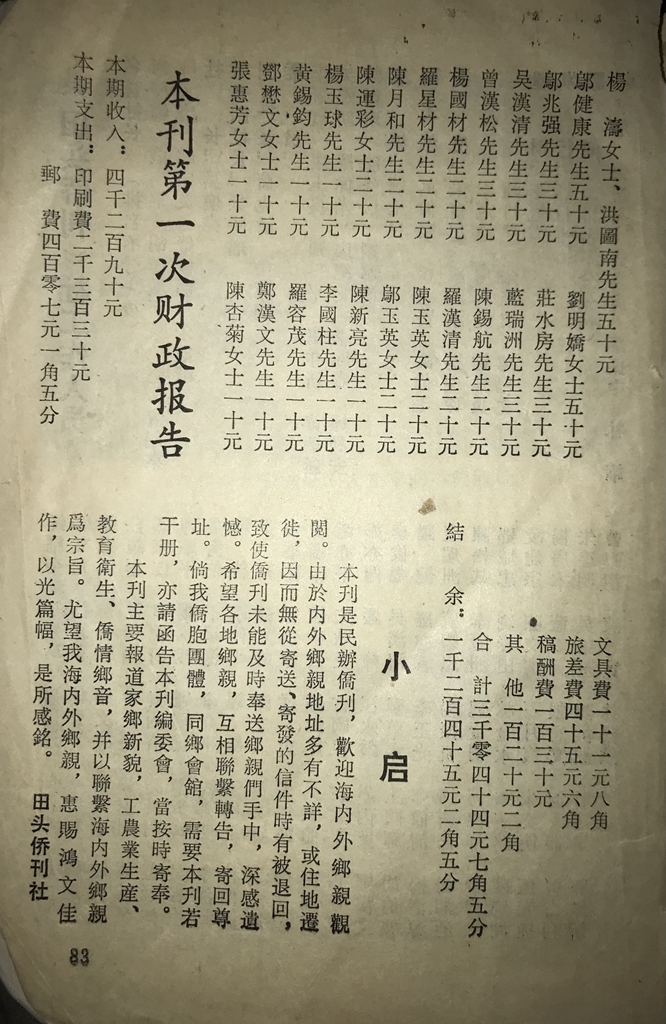 楊　濤女士、洪圖南先生五十元
鄔健康先生五十元
劉明嬌女士五十元
鄔兆强先生三十元
莊水房先生三十元
吴漢清先生三十元
藍瑞洲先生三十元
曾漢松先生三十元
陳錫航先生二十元
楊國材先生二十元
羅漢清先生二十元
羅星材先生二十元
陳玉英女士二十元
陳月和先生二十元
鄔玉英女士二十元
陳運彩女士二十元
陳新亮先生一十元
楊玉球先生一十元
李國柱先生一十元
黄錫鈞先生一十元
羅容茂先生一十元
鄧懋文女士一十元
鄭漢文先生一十元
張惠芳女士一十元
陳杏菊女士一十元
本刊第一次财政报告
本期收入：四千二百九十元
本期支出：印刷費二千三百三十元
郵　費四百零七元一角五分
文具費一十一元八角
旅差費四十五元六角
稿酬費一百三十元
其　他一百二十元二角
合　計三千零四十四元七角五分
結　余：一千二百四十五元二角五分
小启
本刊是民辦僑刊，歡迎海内外鄉親觀
閲。由於内外鄉親地址多有不詳，或住地遷
徙，因而無從寄送、寄發的信件時有被退回，
致使僑刊未能及時奉送鄉親們手中，深感遺
憾。希望各地鄉親，互相聯繫轉告，寄回尊
址。倘我僑胞團體，同鄉會舘，需要本刊若
干册，亦請函告本刊編委會，當按時寄奉。
本刊主要報道家鄉新貌，工農業生産、
教育衛生、僑情鄉音，并以聯繫海内外鄉親
爲宗旨。尤望我海内外鄉親，惠賜鴻文佳
作，以光篇幅，是所感銘。
田头侨刊社
83